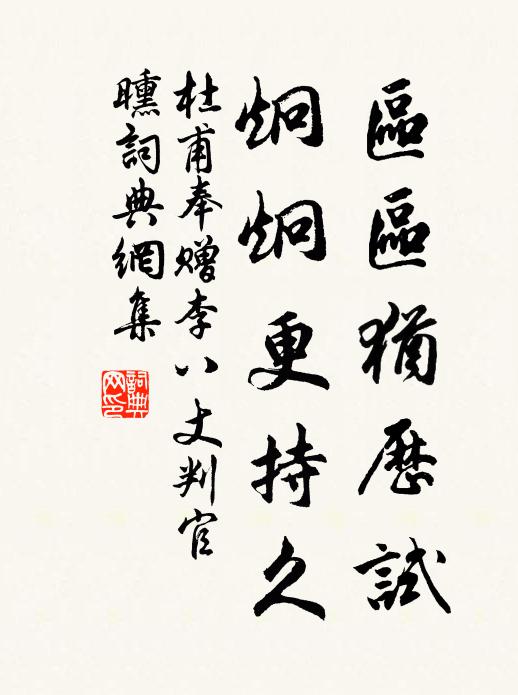 區區猶歷試
炯炯更持久
杜甫奉贈李八丈判官
曛詞典網集
詞典
网印